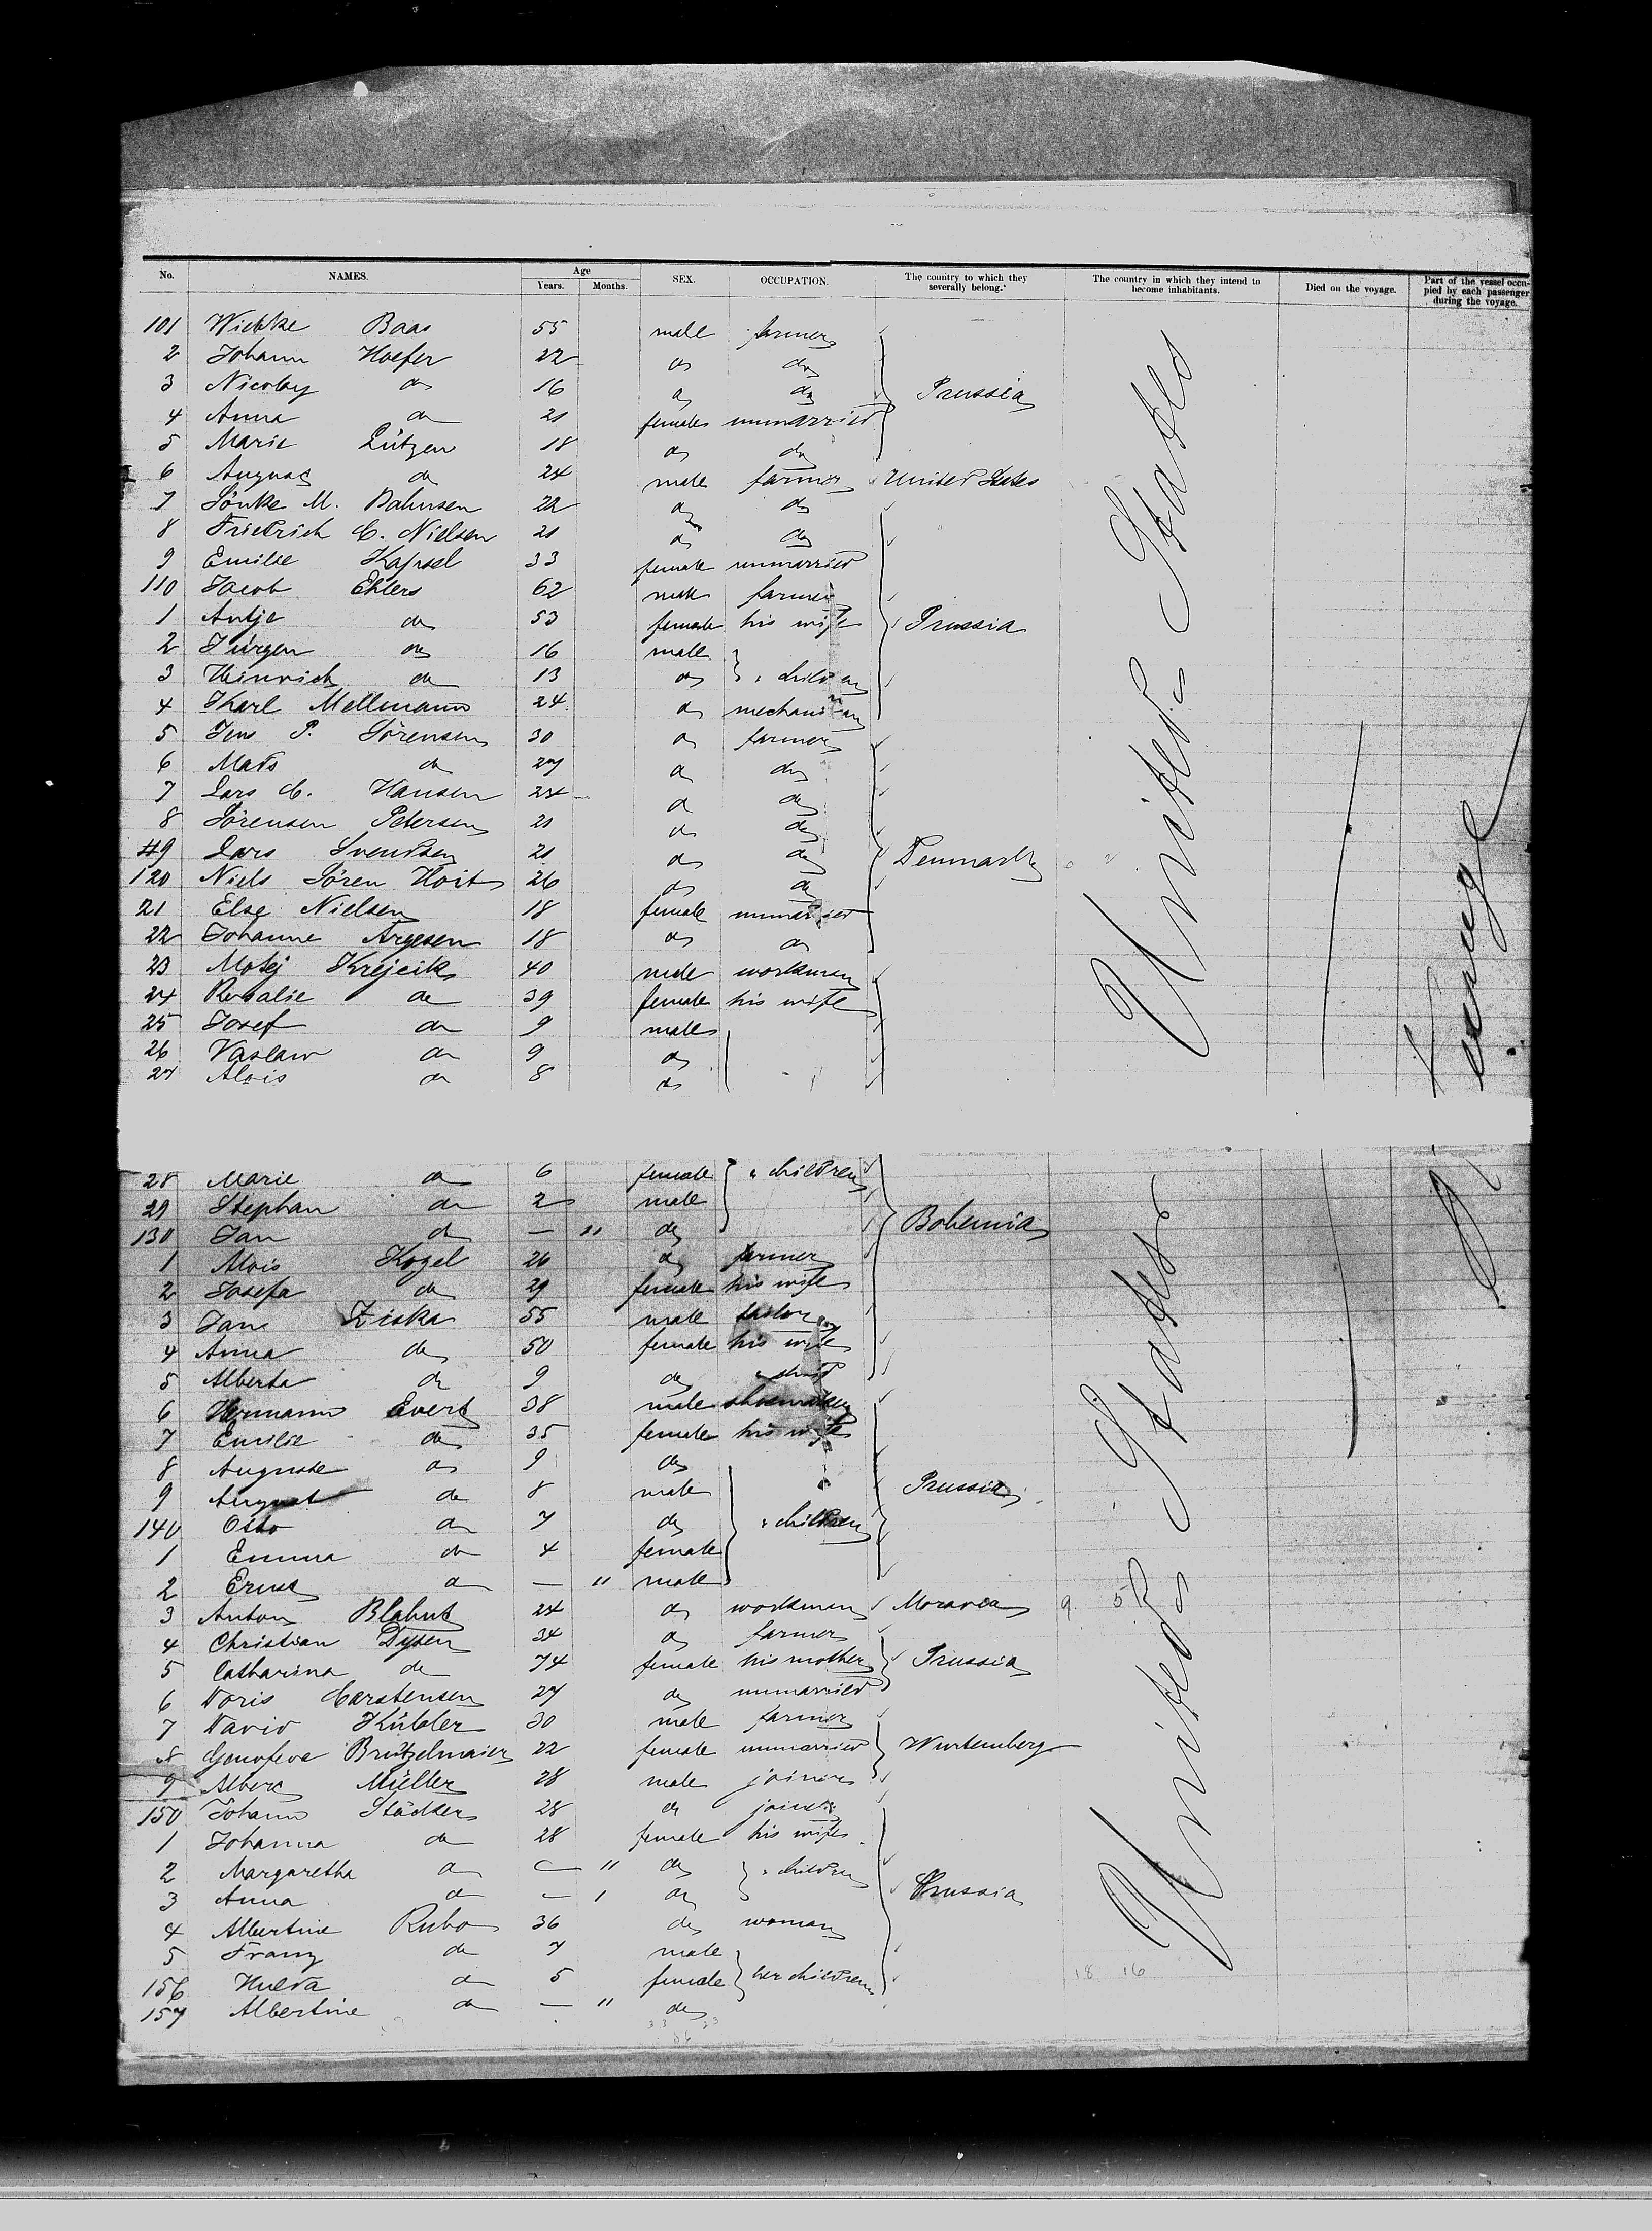 No. NAMES. Age Years. Months. SEX. OCCUPATION. The country to which they severally belong. The country in which they intend to become inhabitants. Died on the voyage. Part of the vessel occupied by each passenger during the voyage.
101 Wiebke Baas 55 male farmer
2 Johann Hoefer 22 do do
3 Nicolay do 16 do do Prussia
4 Anna do 21 female unmarried
5 Marie Lützen 18 do do
6 August do 24 male farmer United States
7 Sönke M. Bahnsen 22 do do
8 Friedrich C. Nielsen 21 do do
9 Emilie Kapsel 33 female unmarried
110 Jacob Ehlers 62 male farmer
1 Antje do 53 female his wife Prussia
2 Jürgen do 16 male
3 Heinrich do 13 do " children
4 Karl Mellmann 24 do
5 Jens P. Sörensen 30 do farmer
6 Mads do 27 do do
7 Lars C. Hansen 24 do do
8 Sörensen Petersen 21 do do
119 Lars Svendsen 21 do do Denmark
120 Niels Sören Hoit 26 do do
21 Else Nielsen 18 female unmarried
22 Johanne Argesen 18 do do
23 Matej Krejcik 40 male workman
24 Rosalie do 39 female his wife
25 Josef do 9 male
26 Vaslaw do 9 do
27 Alois do 8 do
United States
28 Marie do 6 female " children
29 Stephan do 2 male
130 Jan do — " do Bohemia
1 Alois Kogel 26 do farmer
2 Josefa do 29 female his wife
3 Jane Ziska 55 male tailor
4 Anna do 50 female his wife
5 Alberta do 9 do " child
6 Hermann Evert 38 male shoemaker
7 Emilie do 35 female his wife
8 Auguste do 9 do
9 August do 8 male Prussia
140 Otto do 7 do " children
1 Emma do 4 female
2 Ernst do — " male
3 Anton Blahut 24 do workman Moravia 9 5
4 Christian Dysen 34 do farmer
5 Catharina do 74 female his mother Prussia
6 Doris Carstensen 27 do unmarried
7 David Kübler 30 male farmer
8 Genofeve Brützelmaier 22 female unmarried Wurtemberg
9 Albert Müller 28 male joiner
150 Johann Städter 28 do joiner
1 Johanna do 28 female his wife
2 Margaretha do — " do " children
3 Anna do — 1 do Prussia
4 Albertine Rubo 36 do woman
5 Franz do 7 male
156 Hulda do 5 female her children 18 16
157 Albertine do — " do
United States